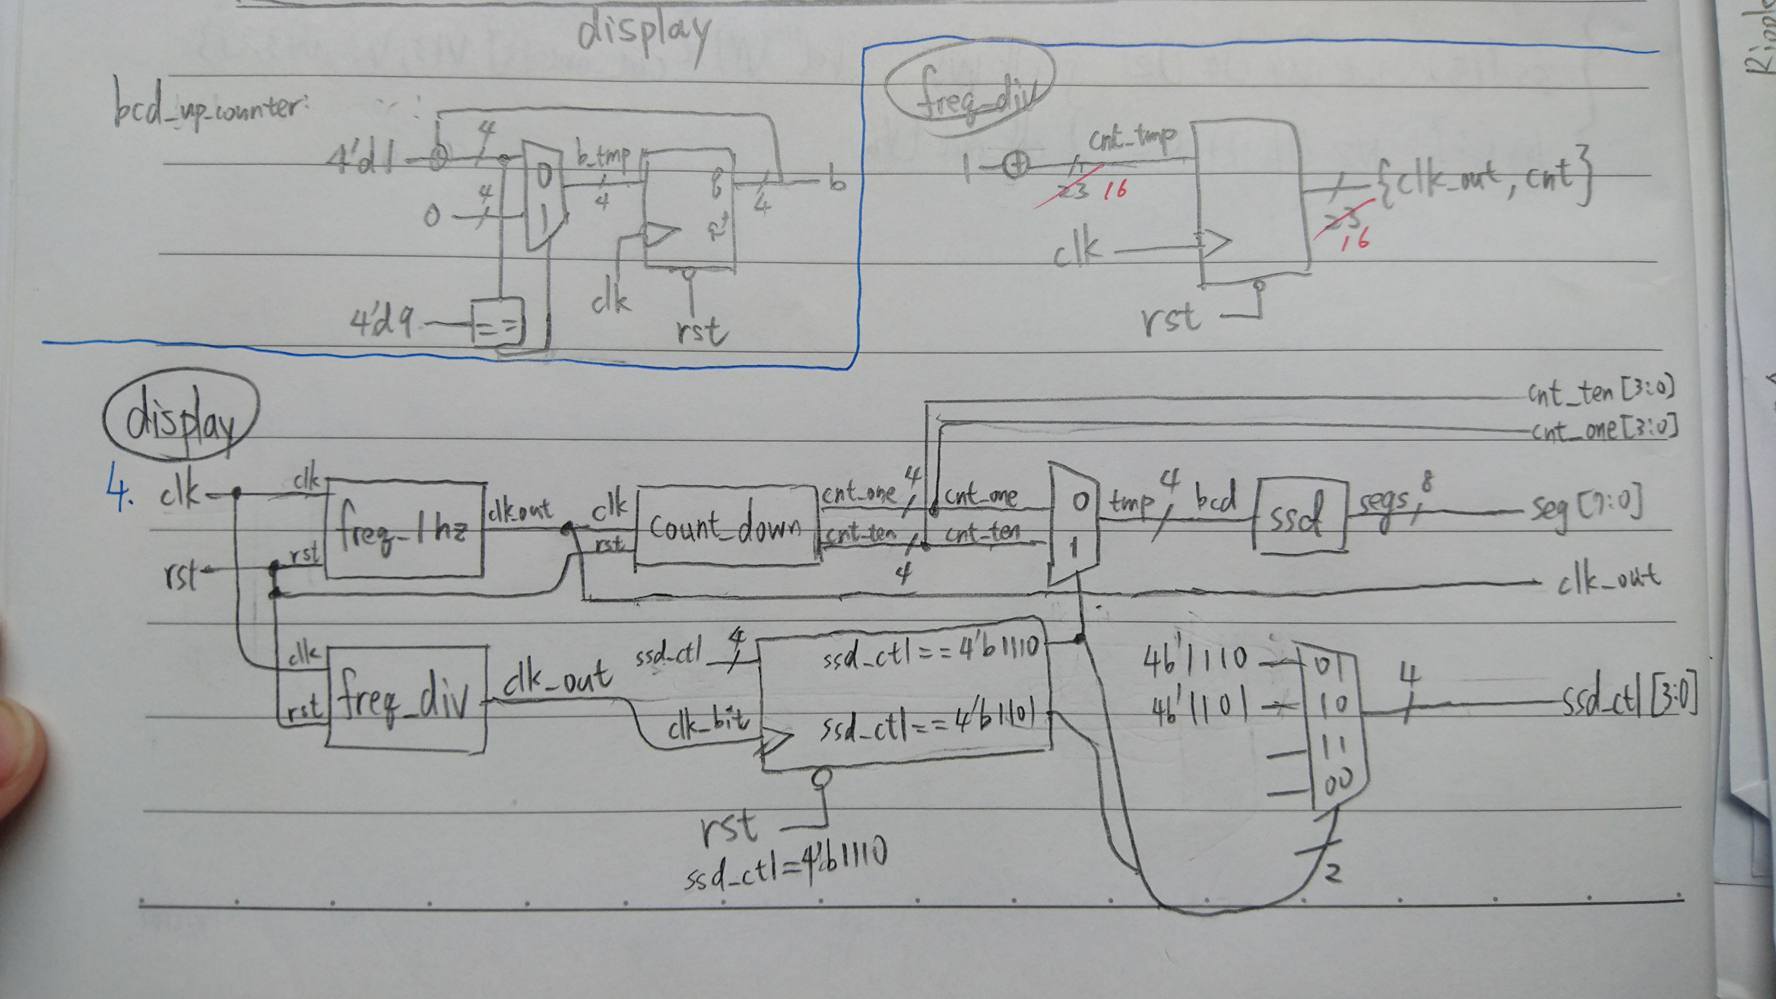 display
bcd_up_counter:
4'd1
4
b_tmp
0
4
0
4
1
q
4
b
q'
clk
4'd9
==
rst
freq_div
cnt_tmp
1
23 16
{clk_out, cnt}
23
16
clk
rst
display
cnt_ten[3:0]
cnt_one[3:0]
4. clk
clk
freq_1hz
clkout
clk
count_down
cnt_one
4
cnt_one
0
tmp
4
bcd
ssd
segs
8
seg[7:0]
rst
rst
rst
cnt_ten
4
cnt_ten
1
clk_out
clk
freq_div
clk_out
rst
ssd_ctl
4
ssd_ctl==4'b1110
clk_bit
ssd_ctl==4'b1101
4b'1110
01
4b'1101
10
11
00
4
ssd_ctl[3:0]
2
rst
ssd_ctl=4'b1110